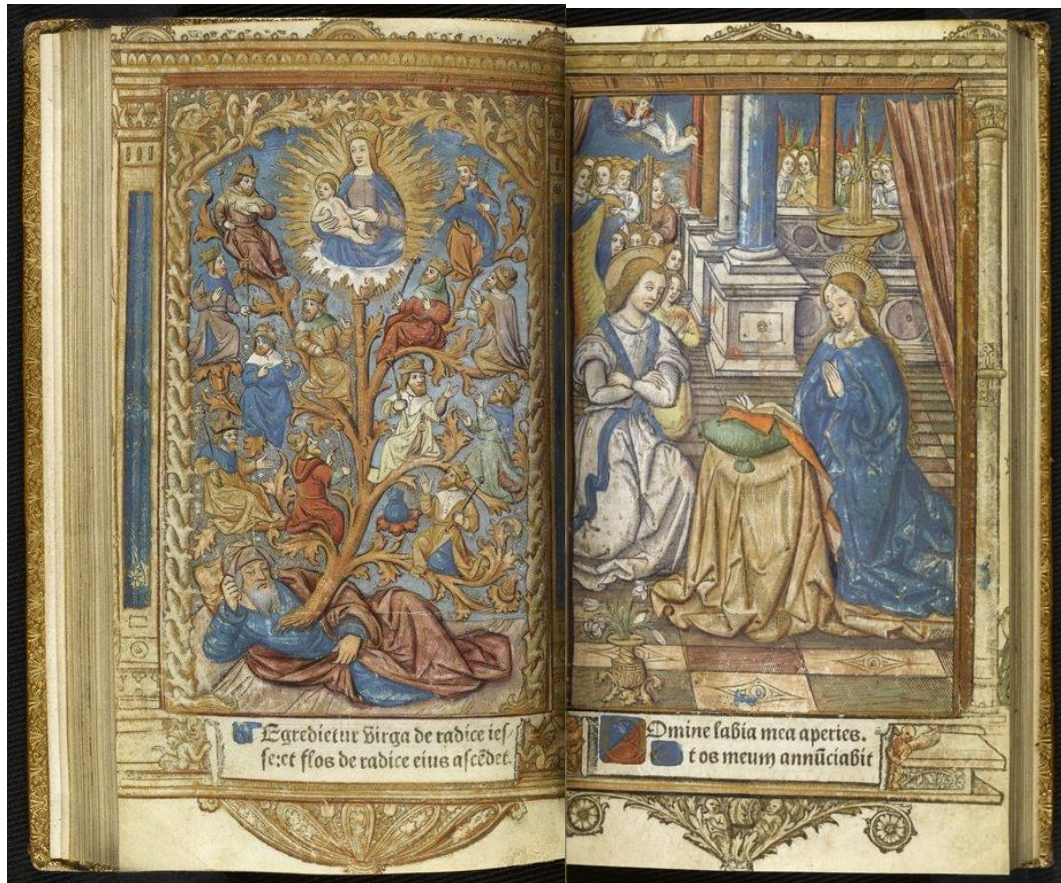 Egredietur Virga de radice ies
se:et flos de radice eius ascēdet.
Domine labia mea aperies.
t os meum annūciabit